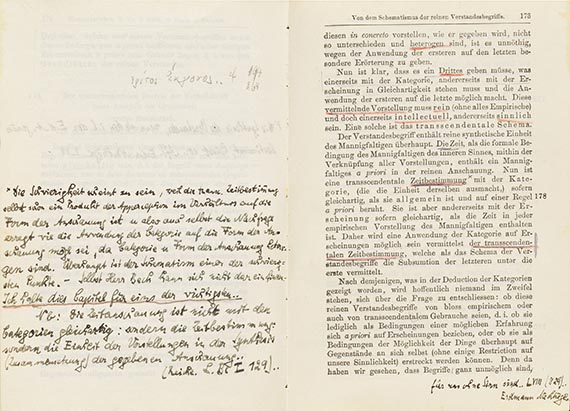 τρίτος ἄνθρωπος
"Die Schwierigkeit scheint zu sein, weil die trans. Zeitbestimmung
selbst schon ein Produkt der Apperception im Verhältniss auf die
Form der Anschauung ist u also auch selbst die Nachfrage
erregt wie die Anwendung der Categorie auf die Form der An-
schauung möglich sei, da Categorie u Form der Anschauung heterogen
sind. Überhaupt ist der Schematism einer der schwierigsten
Punkte. – Selbst Herr Beck kann sich nicht darein finden.
Ich halte dies Capitel für eins der wichtigsten..
Nb: Die Zeitanschauung ist nicht mit den
Categorien gleichartig: sondern die Zeitbestimmung:
sondern die Einheit der Vorstellungen in der Synthesis
(Zusammensetzung) der gegebenen Anschauung..
129)..
Von dem Schematismus der reinen Verstandesbegriffe. 173
diesen in concreto vorstellen, wie er gegeben wird, nicht
so unterschieden und heterogen sind, ist es unnötig,
wegen der Anwendung des ersteren auf den letzten be-
sondere Erörterung zu geben.
Nun ist klar, dass es ein Drittes geben müsse, was
einerseits mit der Kategorie, andererseits mit der Er-
scheinung in Gleichartigkeit stehen muss und die An-
wendung der ersteren auf die letzte möglich macht. Diese
vermittelnde Vorstellung muss rein (ohne alles Empirische)
und doch einerseits intellectuell, andererseits sinnlich
sein. Eine solche ist das transcendentale Schema.
Der Verstandesbegriff enthält reine synthetische Einheit
des Mannigfaltigen überhaupt. Die Zeit, als die formale Be-
dingung des Mannigfaltigen des inneren Sinnes, mithin der
Verknüpfung aller Vorstellungen, enthält ein Mannig-
faltiges a priori in der reinen Anschauung. Nun ist
eine transcendentale Zeitbestimmung mit der Kate-
gorie, (die die Einheit derselben ausmacht) sofern
gleichartig, als sie allgemein ist und auf einer Regel
a priori beruht. Sie ist aber andererseits mit der Er- 178
scheinung sofern gleichartig, als die Zeit in jeder
empirischen Vorstellung des Mannigfaltigen enthalten
ist. Daher wird eine Anwendung der Kategorie auf Er-
scheinungen möglich sein vermittelst der transcenden-
talen Zeitbestimmung, welche als das Schema der Ver-
standesbegriffe die Subsumtion der letzteren unter die
erste vermittelt.
Nach demjenigen, was in der Deduction der Kategorien
gezeigt worden, wird hoffentlich niemand im Zweifel
stehen, sich über die Frage zu entschliessen: ob diese
reinen Verstandesbegriffe von bloss empirischem oder
auch von transcendentalem Gebrauche seien, d. i. ob sie
lediglich als Bedingungen einer möglichen Erfahrung
sich a priori auf Erscheinungen beziehen, oder ob sie als
Bedingungen der Möglichkeit der Dinge überhaupt auf
Gegenstände an sich selbst (ohne einige Restriction auf
unsere Sinnlichkeit) erstreckt werden können. Denn da
haben wir gesehen, dass Begriffe ganz unmöglich sind,
für uns ohne Sinn sind..
Erdmann Nachträge